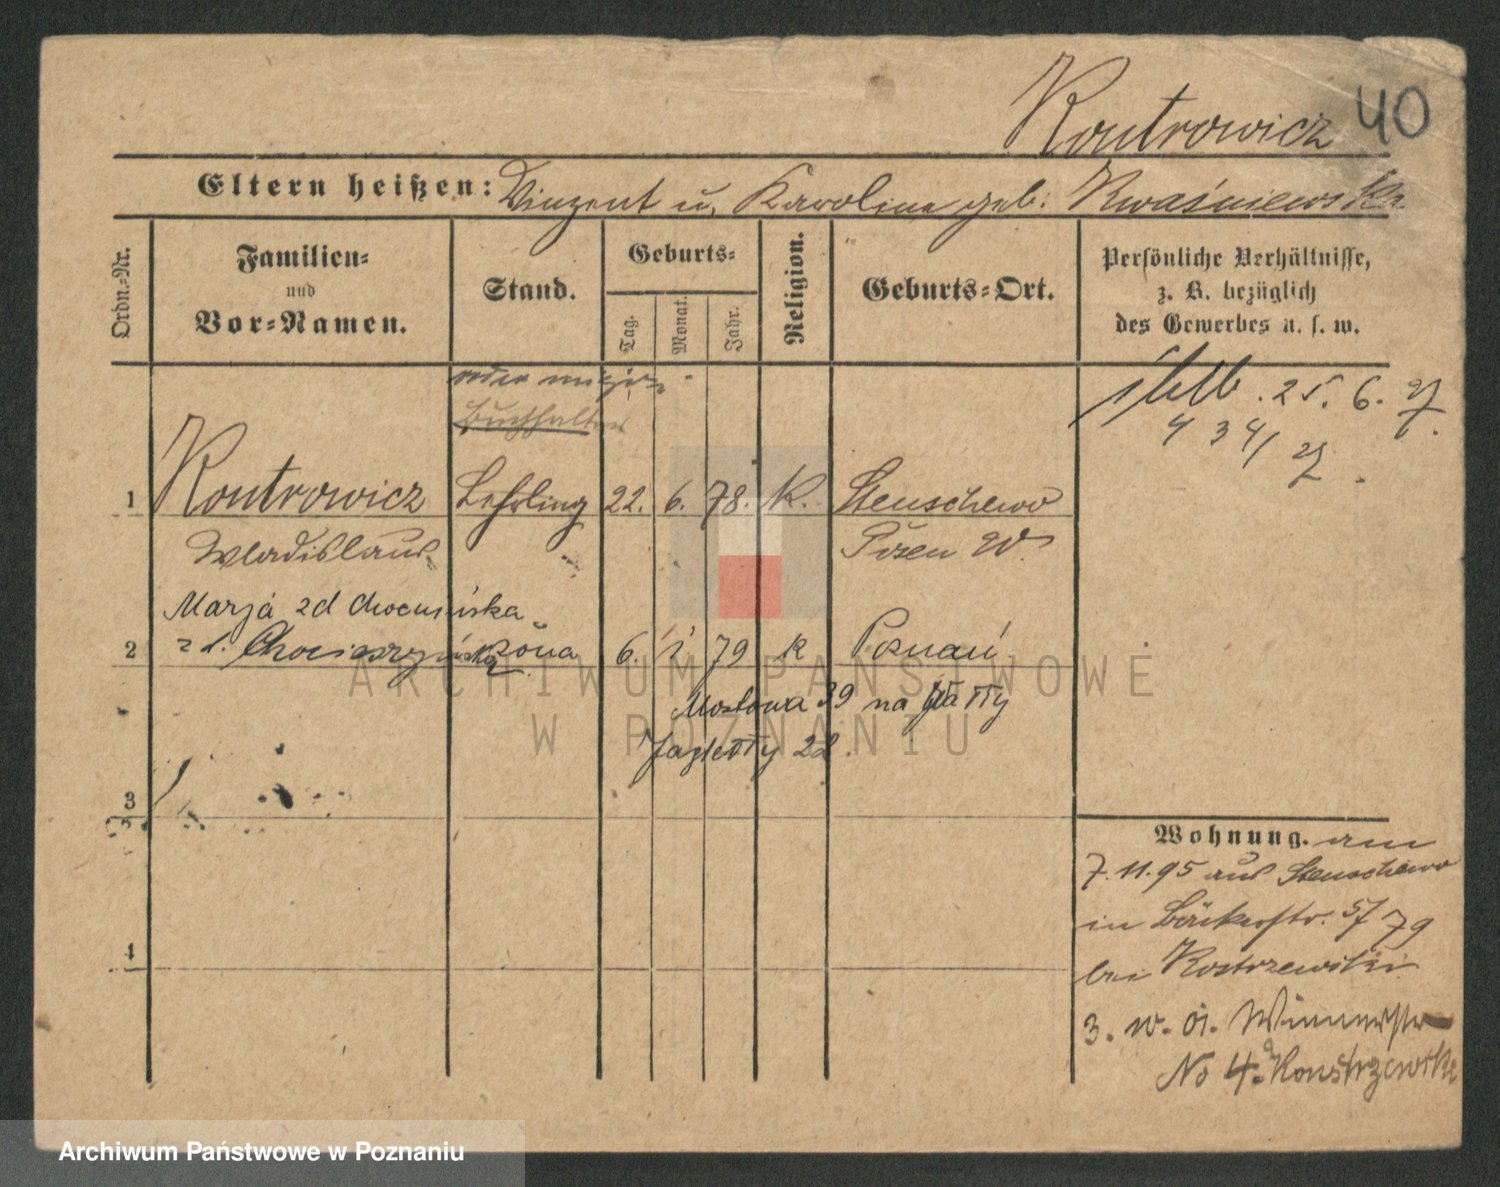 Kontrowicz 40
Eltern heißen: Vinzent u. Karoline geb. Kwaśniewska
Ordn.-Nr.
Familien-
und
Vor-Namen.
Stand.
Geburts-
Tag.
Monat.
Jahr.
Religion.
Geburts-Ort.
Persönliche Verhältnisse,
z. B. bezüglich
des Gewerbes u. s. w.
25. 6. 27.
4 34/27.
Buchhalter
1 Kontrowicz Lehrling 22. 6. 78. K. Stenschewo
Wladislaus Posen W.
Marja zd
2 żona 6. 1 79 K Poznań
Mostowa 39 na
Jagiełły 22.
3
4
Wohnung. am
7.11.95 aus Stenschewo
in Bäckerstr. 79
bei Kostrzewski
3. w.
No 4.
ARCHIWUM PAŃSTWOWE
W POZNANIU
Archiwum Państwowe w Poznaniu